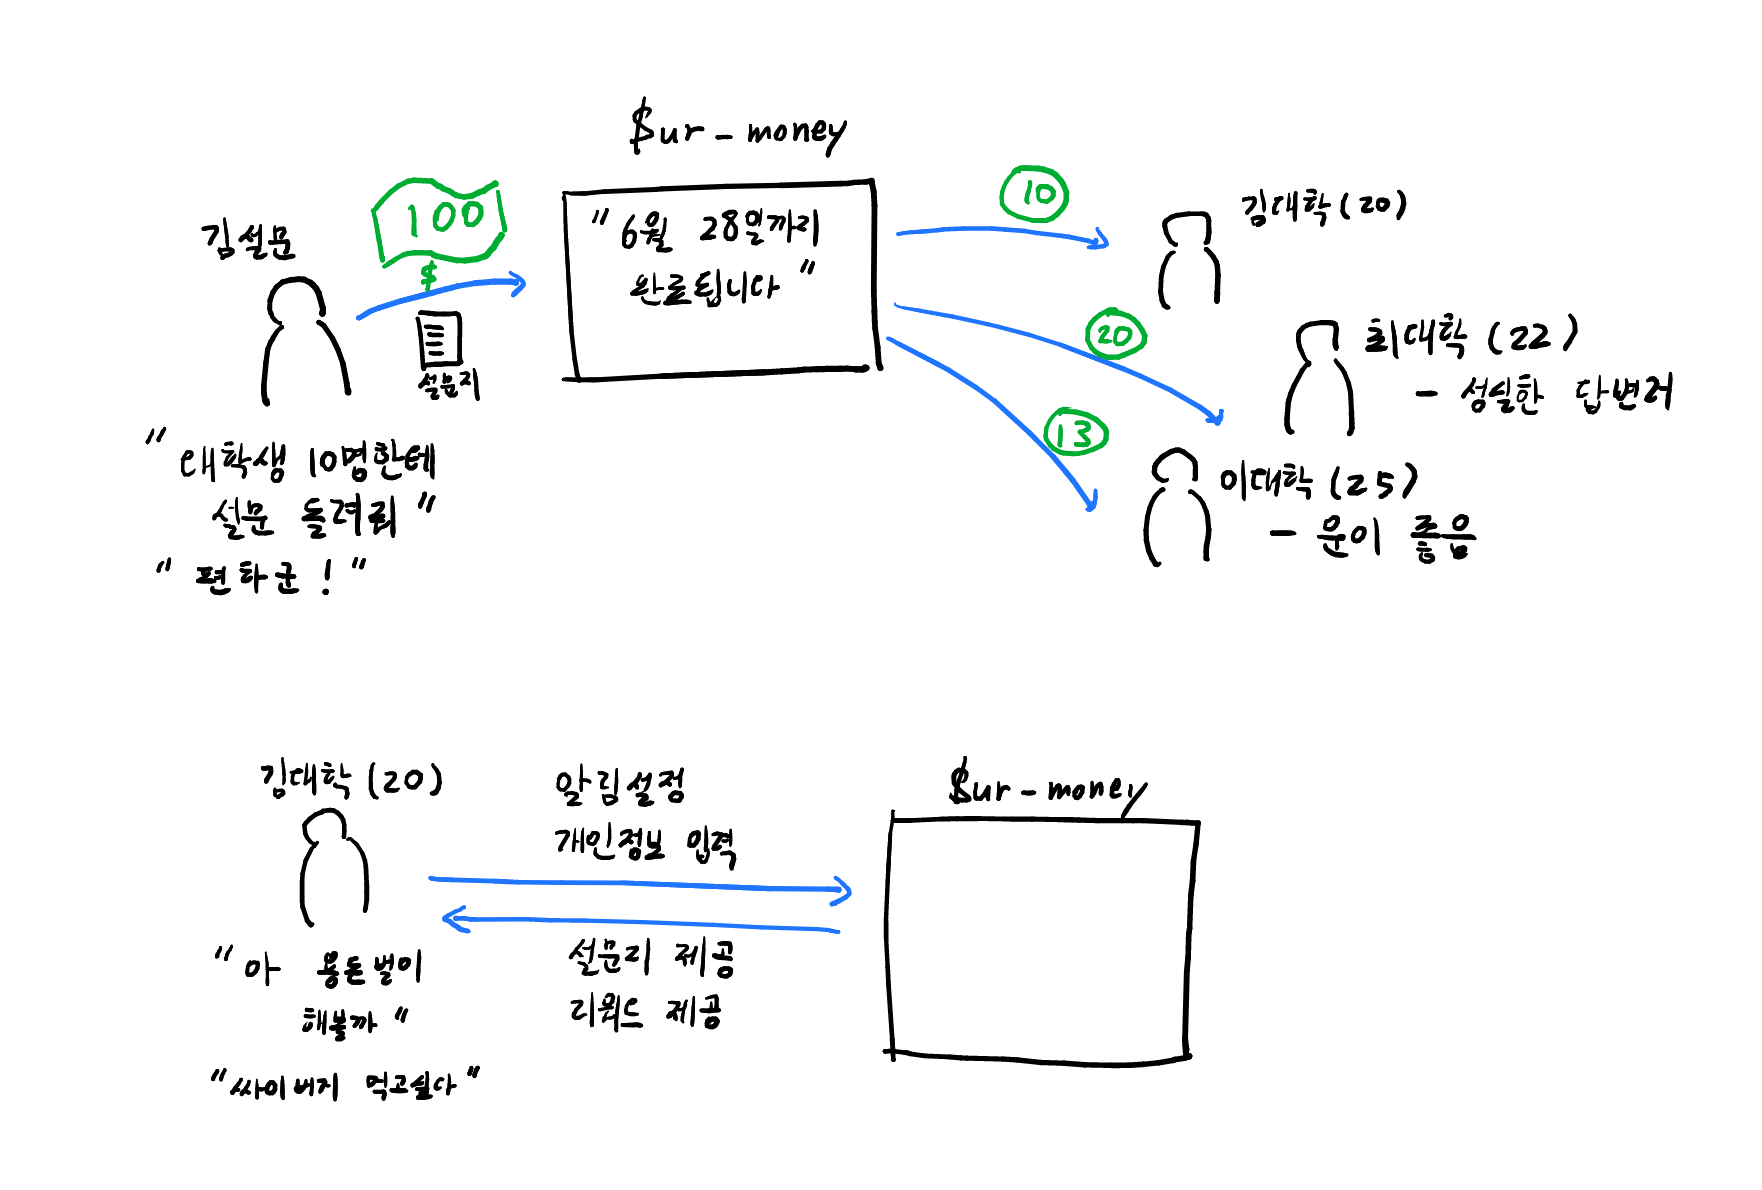 $ur-money
김설문
100
$
설문지
"대학생 10명한테
설문 돌려줘"
"편하군!"
"6월 28일까지
완료됩니다"
10
김대학(20)
20
최대학(22)
- 성실한 답변러
13
이대학(25)
- 운이 좋음
김대학(20)
"아 용돈벌이
해볼까"
"싸이버거 먹고싶다"
알림설정
개인정보 입력
설문지 제공
리워드 제공
$ur-money